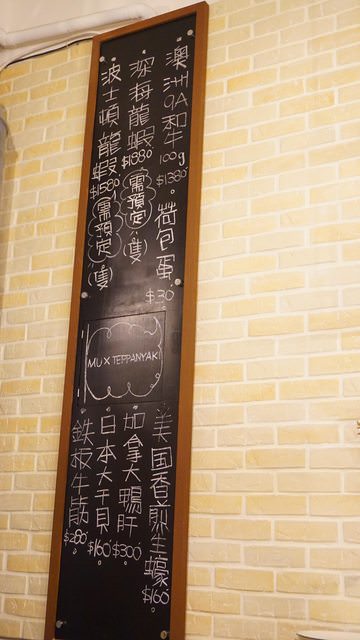 澳洲9A和牛100g $1380。荷包蛋 $30
深海龍蝦 $1380 (需預定) (隻)
波士頓龍蝦 $1580 (需預定) (隻)
MU X TEPPANYAKI
美國香煎生蠔 $160。
加拿大鴨肝 $300。
日本大干貝 $160。
鉄板牛筋 $280。